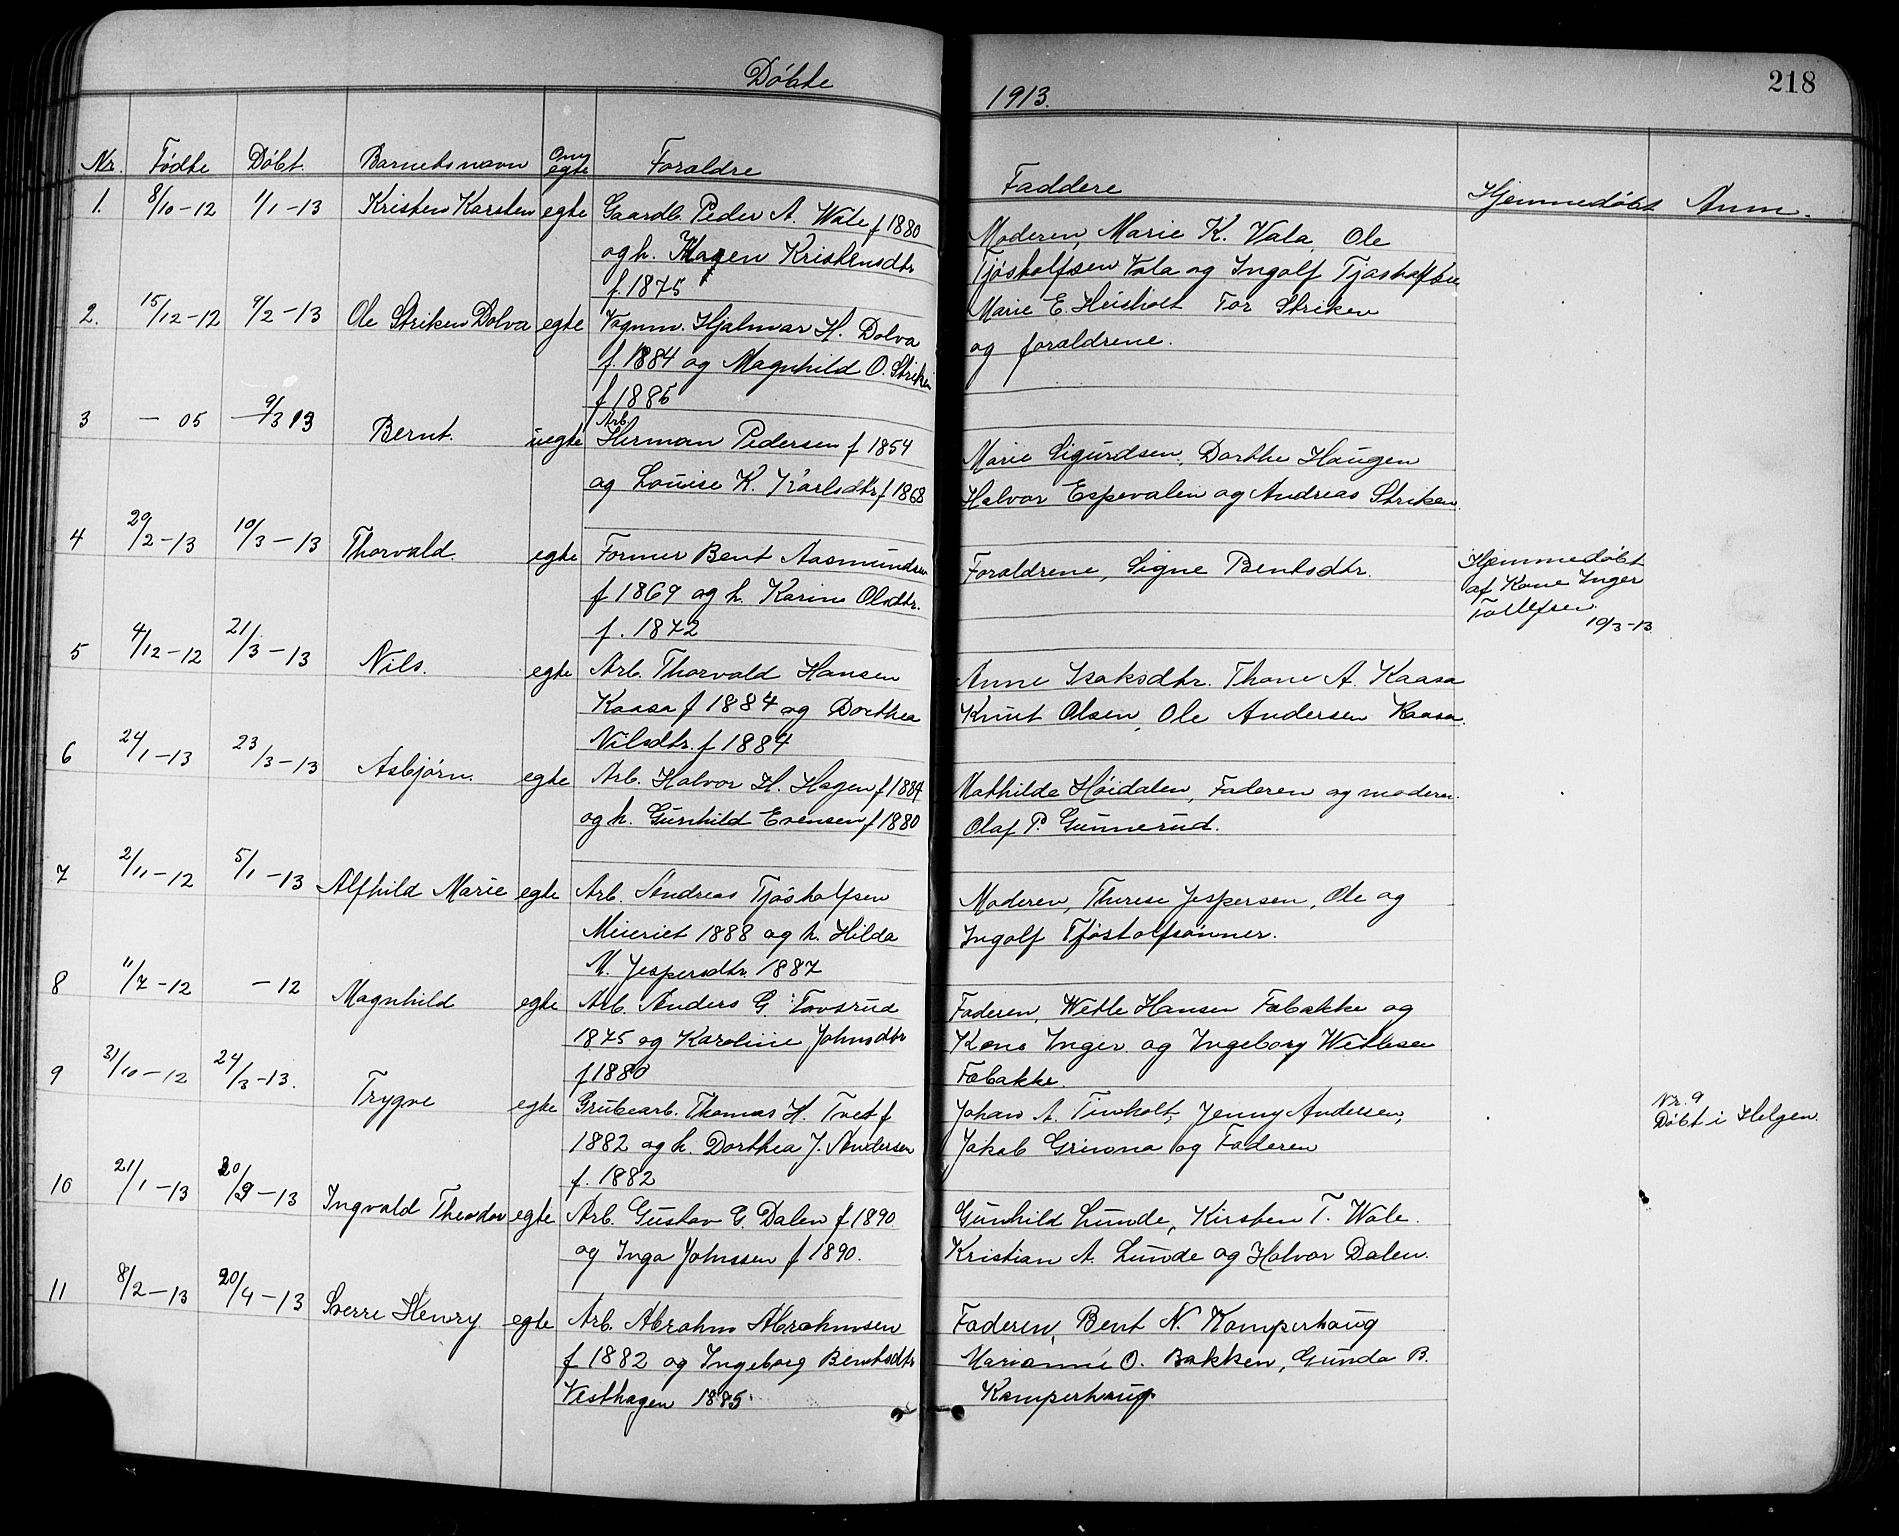 Döbte
1913.
218
Nr. Födte Döbt. Barnets navn Om egte Foraldre Faddere Hjemmedöbt Anm.
1. 8/10-12 1/1-13 Kristen Karsten egte Gaardb. Peder A. Wale f 1880
og h. Maren Kristensdtr
f. 1875
Moderen, Marie K. Vala Ole
Tjöstolfsen Vala og Ingolf Tjostolfsen
2. 15/12-12 9/2-13 Ole Striken Dolva egte Vognm. Hjalmar H. Dolva
f. 1884 og Magnhild O. Striken
f 1885
Marie E. Heisholt Tor Striken
og foraldrene.
3 - 05 9/3 13 Bernt. uegte Arb. Herman Pedersen f 1854
og Louise K. Karlsdtr f 1868
Marie Sigurdsen, Dorthe Haugen
Halvor Espevalen og Andreas Striken.
4 20/2-13 10/3-13 Thorvald. egte Former Bent Aasmundsen
f 1869 og h. Karine Olsdtr.
f. 1872
Foraldrene, Signe Bentsdtr.
Hjemmedöbt
af Kone Inger
Tollefsen
10/3-13
5 4/12-12 21/3-13 Nils. egte Arb. Thorvald Hansen
Kaasa f 1884 og Dorthea
Nilsdtr. f 1884
Anne Isaksdtr. Thone A. Kaasa
Knut Olsen, Ole Andersen Kaasa.
6 24/1-13 23/3-13 Asbjörn. egte Arb. Halvor H. Hagen f 1884
og h. Gunhild Evensen f 1880
Mathilde Höidalen, Faderen og moderen.
Olaf P. Gunnerud.
7 2/11-12 5/1-13 Alfhild Marie egte Arb. Andreas Tjöstolfsen
Meieriet 1888 og h. Hilda
M. Jespersdtr. 1887
Moderen, Therese Jespersen, Ole og
Ingolf Tjöstolfsönner.
8 11/7-12 - 12 Magnhild egte Arb. Anders G. Tovsrud
1875 og Karoline Johnsdtr
f 1880
Faderen, Wetle Hansen Fobakke og
Kone Inger og Ingeborg Wetlesen
Fobakke.
9 31/10-12 24/3-13. Trygve egte Grubearb. Thomas H. Tvet f
1882 og h. Dorthea J. Andersen
f. 1882
Johan A. Tinholt, Jenny Andersen,
Jakob Grivona og Faderen
Nr. 9
Döbt i Helgen.
10 21/1-13 20/3-13 Ingvald Theodor egte Arb. Gustav G. Dalen f 1890
og Inga Johnssen f 1890.
Gunhild Lunde, Kirsten T. Wale.
Kristian A. Lunde og Halvor Dalen.
11 8/2-13 20/4-13 Sverre Henry. egte Arb. Abrahm Abrahmsen
f 1882 og Ingeborg Bentsdtr
Vesthagen 1885
Faderen, Bent N. Kamperhaug
Marianne O. Bakken, Gunda B.
Kamperhaug